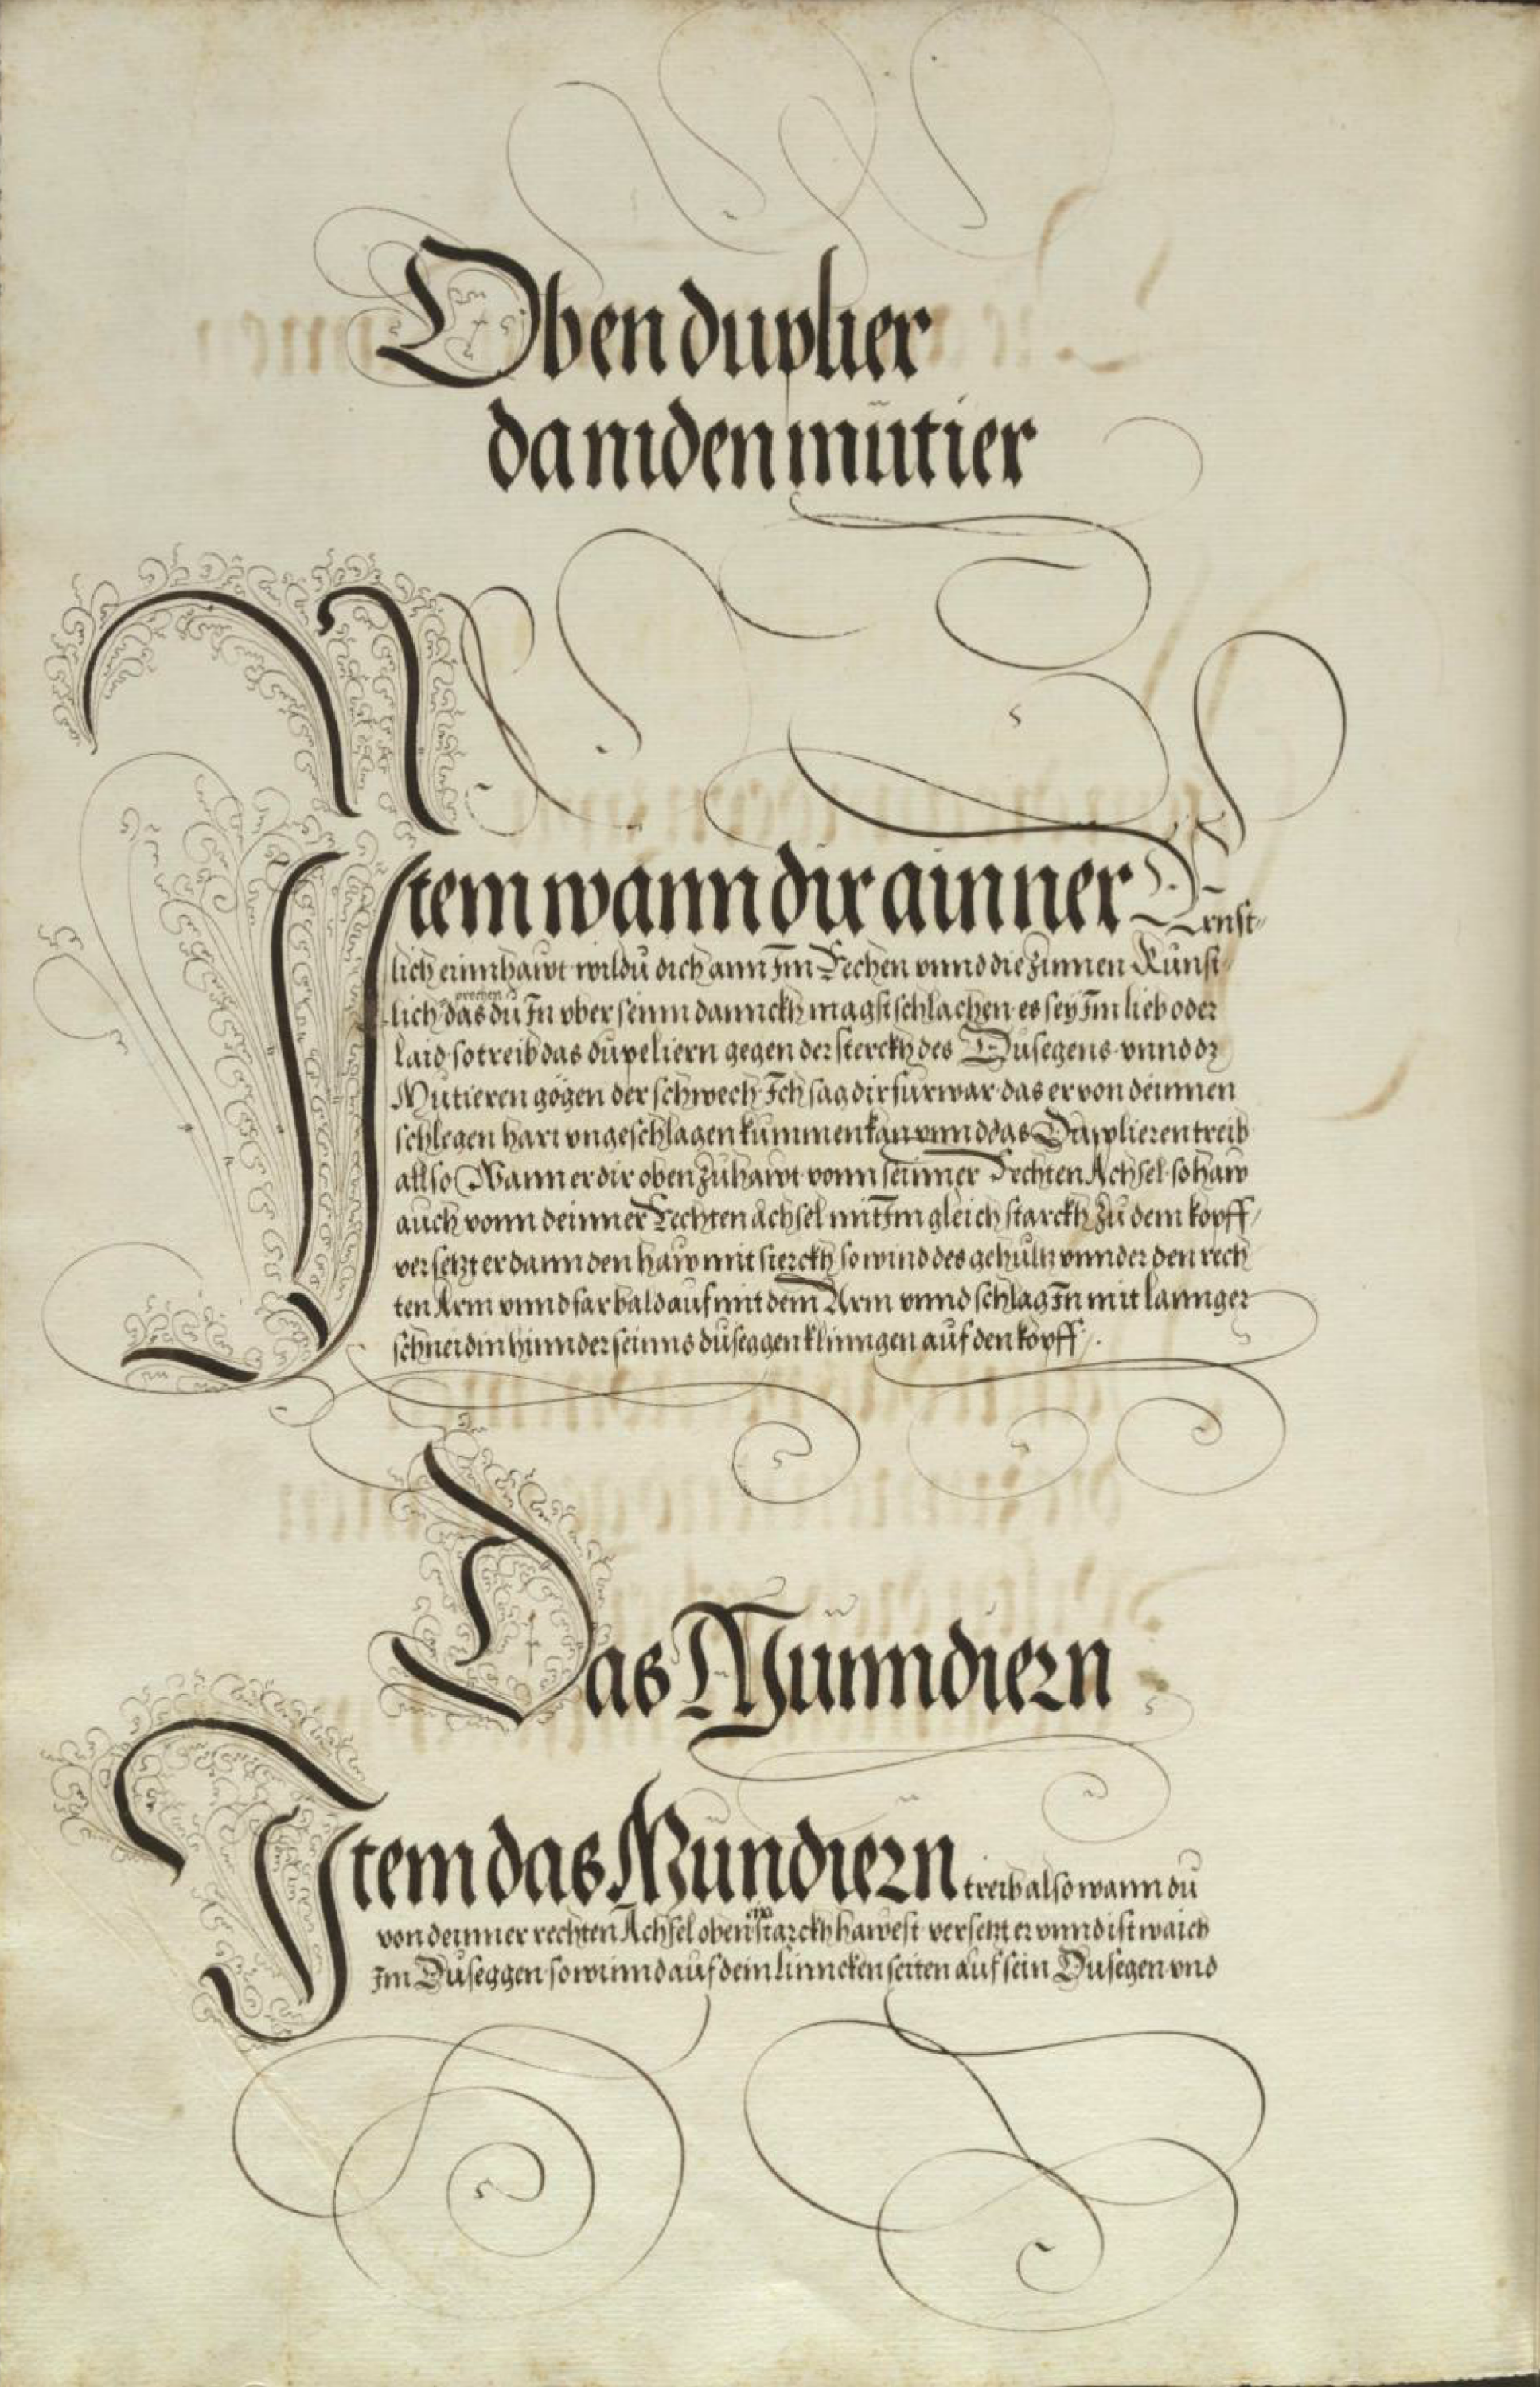 Oben duplier
da niden mutier
Item wann dir ainner Ernst-
lich einnhawt wildu dich ann Im Rechen vnnd die Zinnen Kunst
prechen
lich das du In vber seinn dannckh magst schlachen es sey Im lieb oder
laid so treib das dupeliern gegen der sterckh des Dusegens vnnd dz
Mutieren gögen der schwech Ich sag dir furwar das er von deinnen
schlegen hart vngeschlagen kummen kan vnnd das Duplieren treib
allso Wann er dir oben zu hawt vonn seinner Rechten Achsel so haw
auch vonn deinner Rechten achsel mit Im gleich starckh zu dem kopff
versetzt er dann den haw mit sterckh so wind des gehultz vnnder den rech
ten Arm vnnd far bald auf mit dem Arm vnnd schlag In mit lannger
schneid in hinnder seinns duseggen klinngen auf den kopff
Das Munndiern
Item das Mundiern treib also wann du
von deinner rechten Achsel oben starckh hawest versetzt er vnnd ist waich
Im Duseggen so winnd auf dein linncken seiten auf sein Dusegen vnd